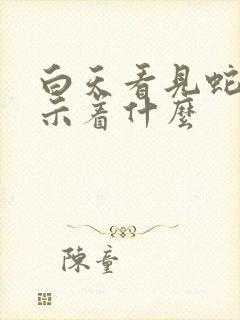 白天看见蛇
示着什麼
陳童